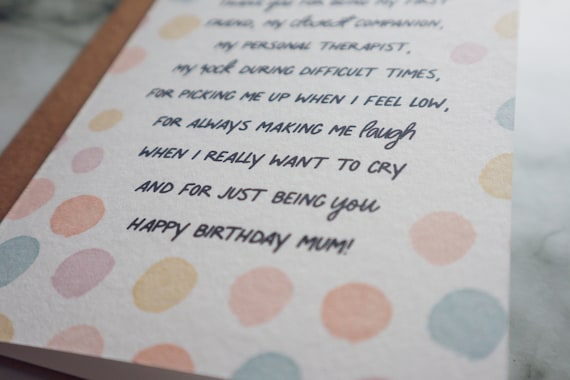 THANK YOU FOR BEING MY FIRST
FRIEND, MY closest COMPANION,
MY PERSONAL THERAPIST,
MY rock DURING DIFFICULT TIMES,
FOR PICKING ME UP WHEN I FEEL LOW,
FOR ALWAYS MAKING ME laugh
WHEN I REALLY WANT TO CRY
AND FOR JUST BEING you
HAPPY BIRTHDAY MUM!